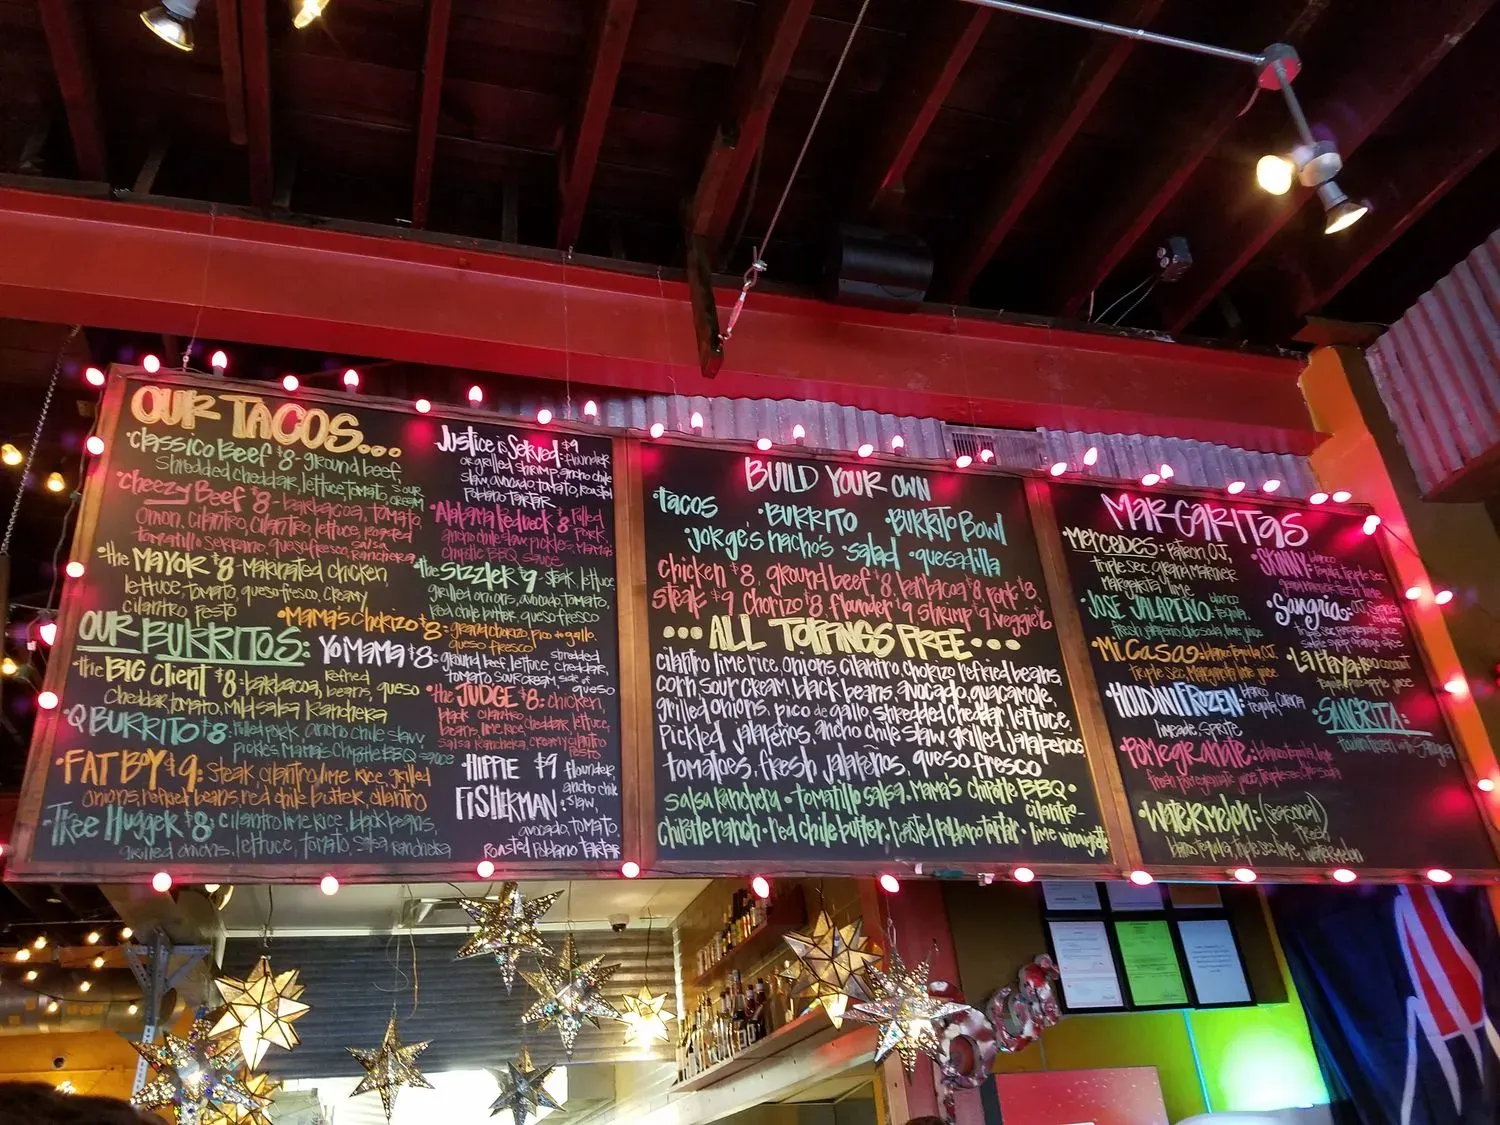 OUR TACOS...
•Classico Beef $8- ground beef,
shredded cheddar, lettuce, tomato, sour cream
•Cheezy Beef $8- barbacoa, tomato,
onion, cilantro, lettuce, roasted
tomatillo serrano, queso fresco, salsa ranchera
•the MAYOR $8- Marinated chicken,
lettuce, tomato, queso fresco, creamy
cilantro pesto
•Mama's Chorizo $8: chorizo, pico de gallo,
queso fresco
Justice is Served: $9
flounder
or grilled shrimp, ancho chile
slaw, avocado, tomato, roasted
Poblano tartar
•Alabama Redneck $8 Pulled
Pork,
ancho chile slaw, pickles, Mama's
Chipotle BBQ sauce
•the Sizzler $9- steak, lettuce
grilled onions, avocado, tomato,
red chile butter, queso fresco
OUR BURRITOS:
•the BIG Client $8- barbacoa, refried beans, queso
Cheddar, tomato, Mild salsa Ranchera
•Q BURRITO $8: pulled pork, ancho chile slaw,
pickles Mama's Chipotle BBQ sauce
•FAT BOY $9: steak, cilantro lime rice, grilled
onions, refried beans, red chile butter, cilantro
•Tree Hugger $8: cilantro lime rice, black beans,
grilled onions, lettuce, tomato, salsa ranchera
YO MAMA $8:
ground beef, lettuce, shredded cheddar,
tomato, sour cream, side of queso
•the JUDGE $8: chicken,
black beans, cilantro lime rice, cheddar, lettuce,
Salsa Ranchera, creamy cilantro pesto
HIPPIE $9
FISHERMAN:
flounder,
ancho chile
slaw,
avocado, tomato,
roasted Poblano tartar
BUILD YOUR OWN
•Tacos •BURRITO •BURRITO BOWL
•Jorge's nacho's •salad •quesadilla
Chicken $8, ground beef $8, barbacoa $8, pork $8,
steak $9 chorizo $8, flounder $9 shrimp $9, veggie $6
...ALL TOPPINGS FREE...
cilantro lime rice, onions, cilantro, chorizo refried beans,
corn, sour cream, black beans, avocado, guacamole,
grilled onions, pico de gallo, shredded cheddar, lettuce,
Pickled jalapeños, ancho chile slaw, grilled jalapeños
tomatoes, fresh jalapeños, queso fresco
Salsa Ranchera • Tomatillo salsa • Mama's Chipotle BBQ •
Chipotle ranch • red chile butter, roasted poblano tartar • cilantro-lime vinaigrette
MARGARITAS
•MERCEDES: Patron, OJ,
triple sec, grand marnier
Margarita lime
•JOSE JALAPEÑO: blanco tequila,
fresh jalapeño lime juice
•Mi Casa $9: blanco tequila, OJ
triple sec, Margarita lime
•HOUDINI FROZEN: blanco tequila, corona
limeade, sprite
•POMEGRANATE: blanco tequila, lime
fresh pomegranate juice, triple sec
•WATERMELON: (seasonal)
fresh
blanco tequila, triple sec, lime, watermelon
•SKINNY: blanco
tequila, triple sec,
•Sangria: OJ,
triple sec,
•LA Playa: coconut
pineapple, juice
•SANGRITA: